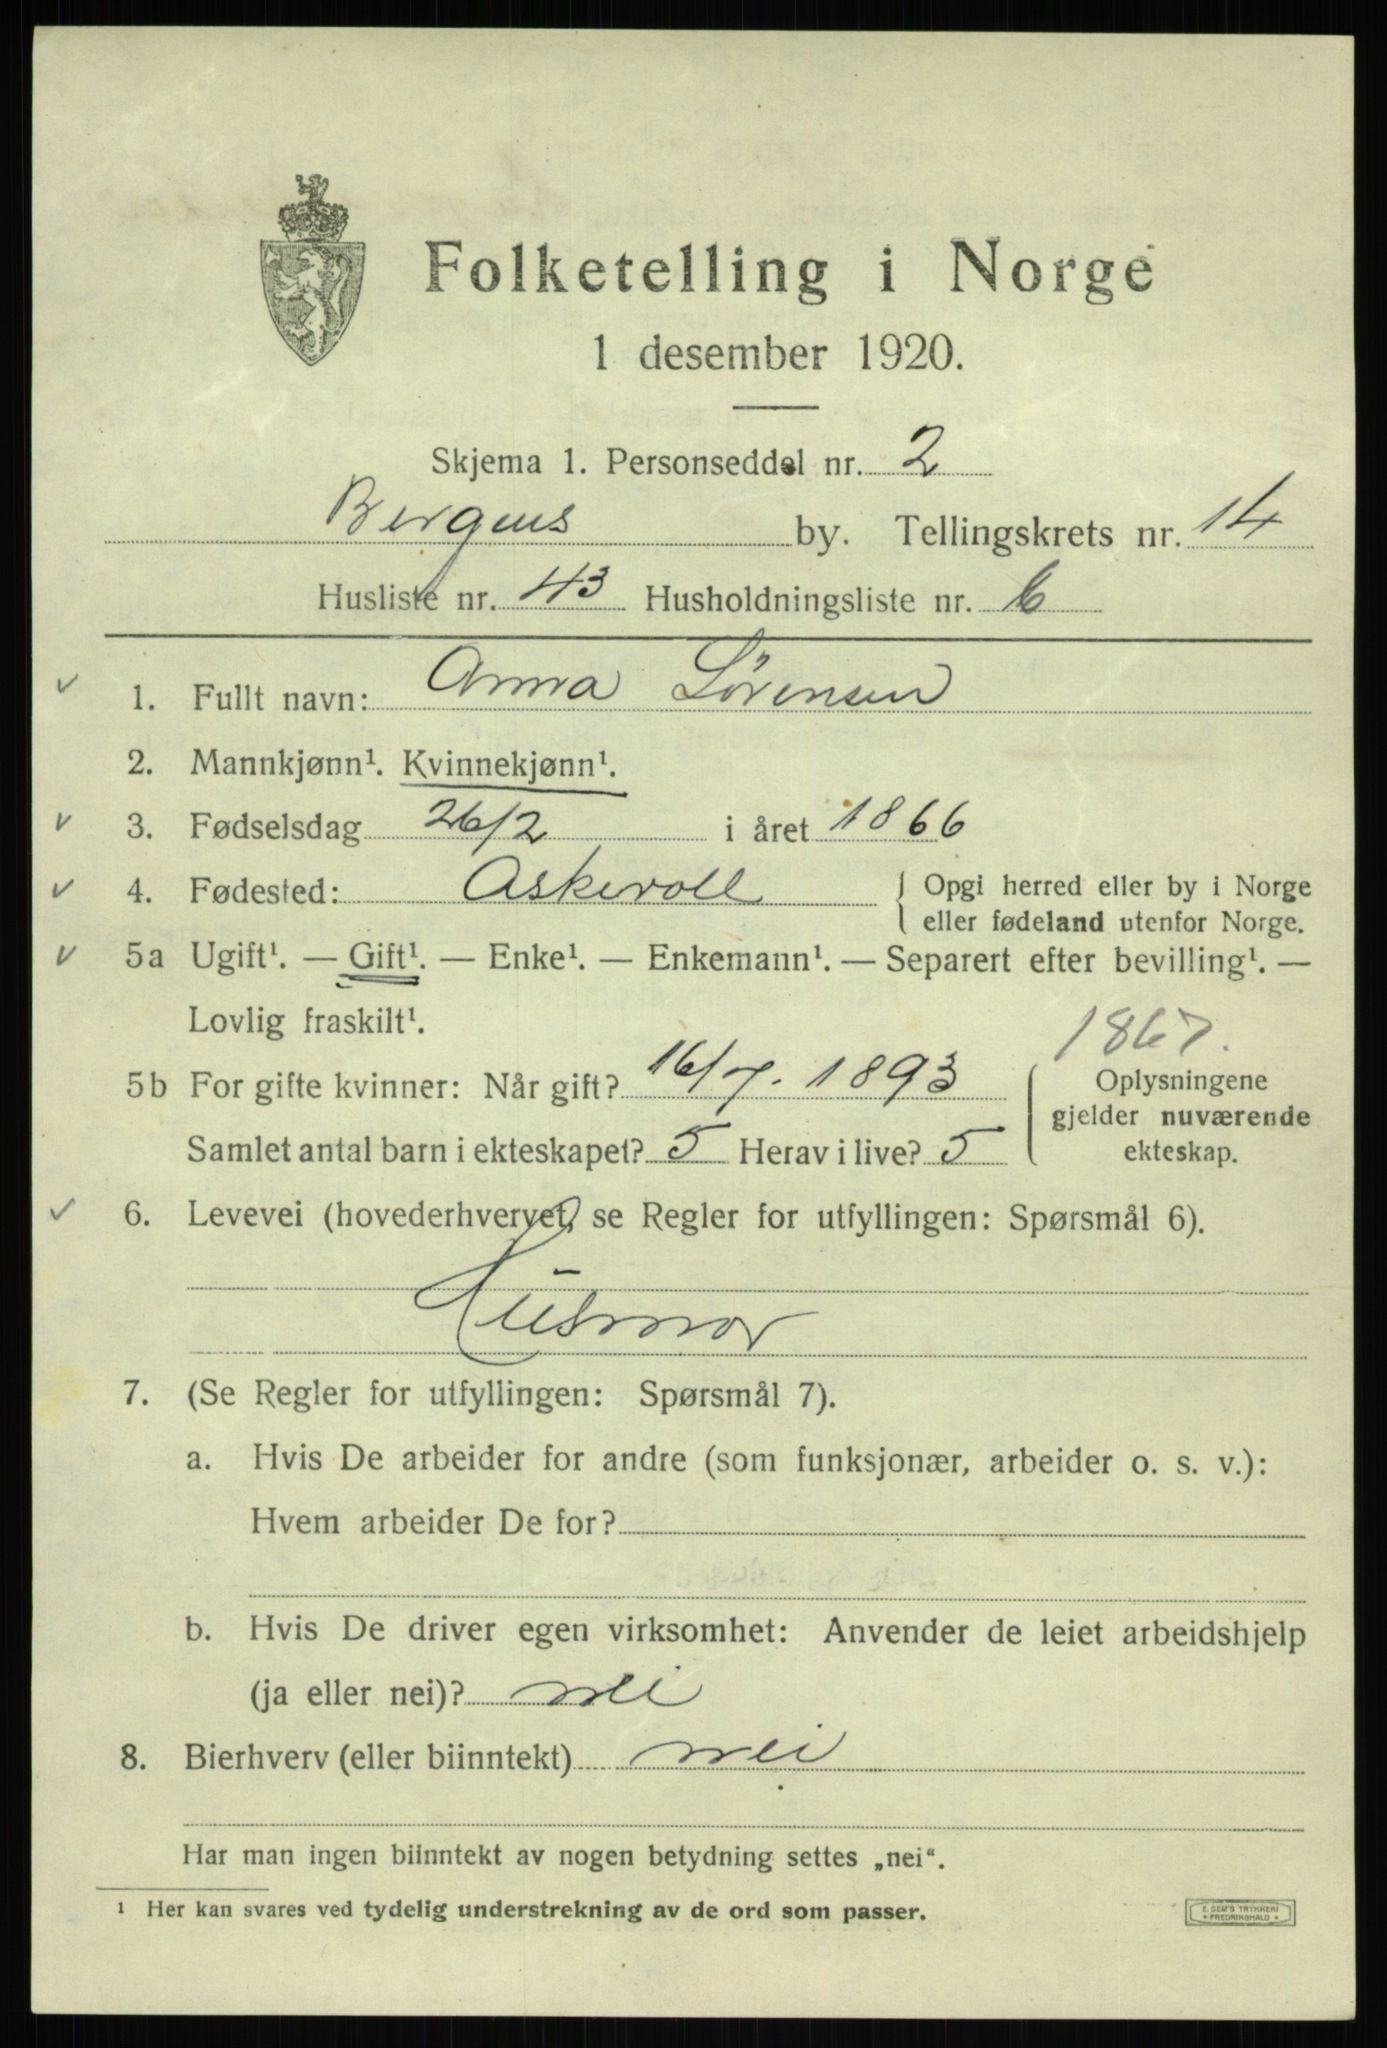 Folketelling i Norge
1 desember 1920.
Skjema 1. Personseddel nr. 2
Bergens by. Tellingskrets nr. 14
Husliste nr. 43 Husholdningsliste nr. 6
1. Fullt navn: Anna Sörensen
2. Mannkjønn¹. Kvinnekjønn¹.
3. Fødselsdag 26/2 i året 1866
4. Fødested: Askevoll { Opgi herred eller by i Norge
eller fødeland utenfor Norge.
5a Ugift¹. — Gift¹. — Enke¹. — Enkemann¹. — Separert efter bevilling¹. —
Lovlig fraskilt¹.
1867.
5b For gifte kvinner: Når gift? 16/7. 1893 { Oplysningene
gjelder nuværende
Samlet antal barn i ekteskapet? 5 Herav i live? 5 ekteskap.
6. Levevei (hovederhvervet, se Regler for utfyllingen: Spørsmål 6).
Husmor
7. (Se Regler for utfyllingen: Spørsmål 7).
a. Hvis De arbeider for andre (som funksjonær, arbeider o. s. v.):
Hvem arbeider De for?
b. Hvis De driver egen virksomhet: Anvender de leiet arbeidshjelp
(ja eller nei)? nei
8. Bierhverv (eller biinntekt) nei
Har man ingen biinntekt av nogen betydning settes „nei“.
¹ Her kan svares ved tydelig understrekning av de ord som passer.
E. SEM'S TRYKKERI
* FREDRIKSHALD *